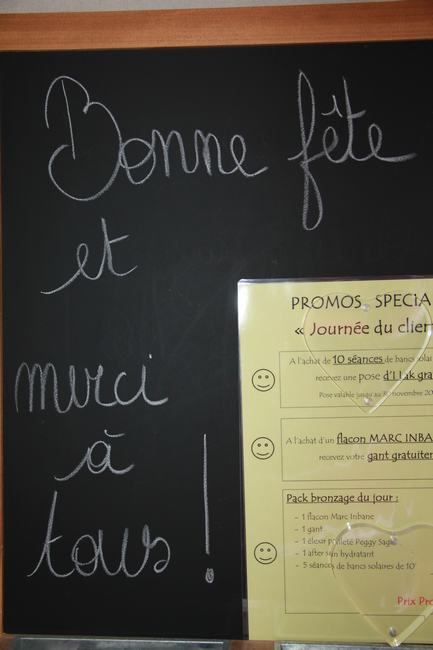 Bonne fête
et
merci
à
tous !
PROMOS SPECIA
« Journée du clien
A l'achat de 10 séances de bancs solai
recevez une pose d'I Lak gra
Pose valable jusqu'au 30 novembre 20
A l'achat d'un flacon MARC INBA
recevez votre gant gratuitem
Pack bronzage du jour :
- 1 flacon Marc Inbane
- 1 gant
- 1 élixir pailleté Peggy Sage
- 1 after sun hydratant
- 5 séances de bancs solaires de 10'
Prix Pro